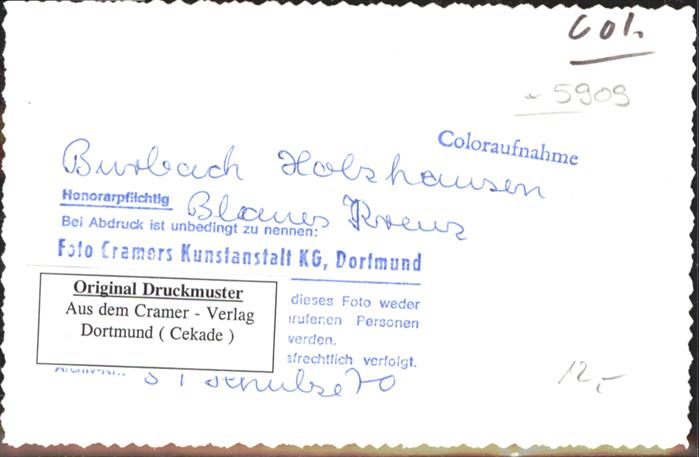 Col.
5909
Coloraufnahme
Burbach Holzhausen
Honorarpflichtig Blaues Kreuz
Bei Abdruck ist unbedingt zu nennen:
Foto Cramers Kunstanstalt KG, Dortmund
Original Druckmuster
Aus dem Cramer - Verlag
Dortmund ( Cekade )
dieses Foto weder
rufenen Personen
werden.
afrechtlich verfolgt.
Schulze 70
12,-